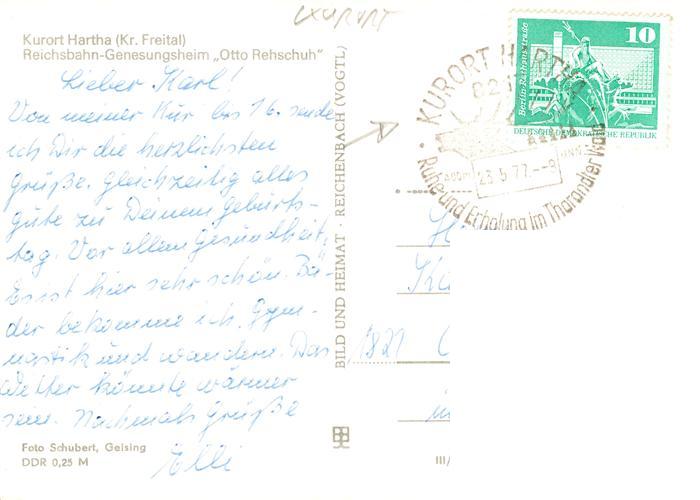 KURORT
Kurort Hartha (Kr. Freital)
Reichsbahn-Genesungsheim „Otto Rehschuh"
Lieber Karl!
Von meiner Kur bis 16. sende
ich Dir die herzlichsten
Grüße. Gleichzeitig alles
gute zu Deinem Geburts-
tag. Vor allem Gesundheit.
Es ist hier sehr schön. Bä-
der bekomme ich, Gym-
nastik und wandern. Das
Wetter könnte wärmer
sein. Nochmals Grüße
Elli
Foto Schubert, Geising
DDR 0,25 M
BILD UND HEIMAT · REICHENBACH (VOGTL)
10
Berlin-Rathausstraße
DEUTSCHE DEMOKRATISCHE REPUBLIK
KURORT HARTHA
8217
23.5.77.--8
Ruhe und Erholung im Tharandter Wald
1821
III/